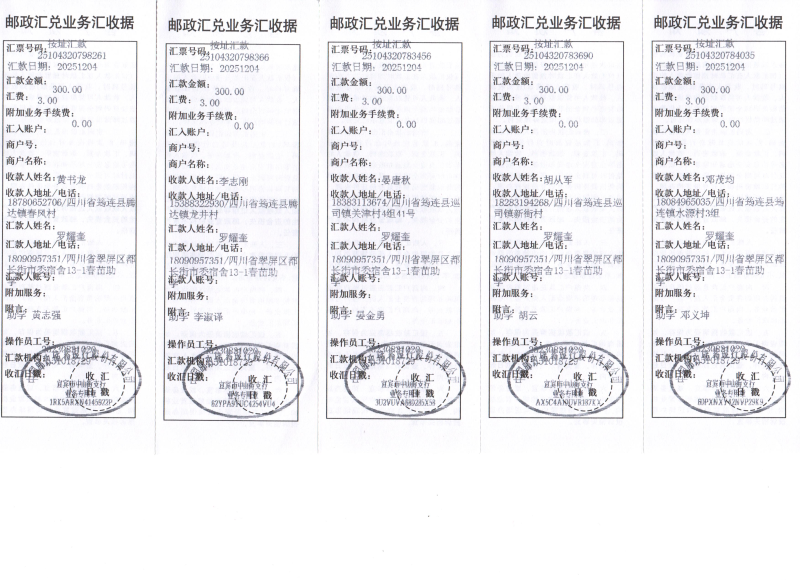 邮政汇兑业务汇收据
按址汇款
汇票号码:
25104320798261
汇款日期: 20251204
汇款金额:
300.00
汇费:
3.00
附加业务手续费:
0.00
汇入账户:
商户号:
商户名称:
收款人姓名: 黄书龙
收款人地址/电话:
18780652706/四川省筠连县腾
达镇春风村
汇款人姓名:
罗耀奎
汇款人地址/电话:
18090957351/四川省翠屏区都
长街市委宿舍13-1春苗助
学
汇款人账号:
附加服务:
附言:
助学 黄志强
操作员工号:
汇款机构:
收汇日戳:
收汇
宜宾市中山街支行
业务专用
日戳
邮政汇兑业务汇收据
按址汇款
汇票号码:
25104320798366
汇款日期: 20251204
汇款金额:
300.00
汇费:
3.00
附加业务手续费:
0.00
汇入账户:
商户号:
商户名称:
收款人姓名: 李志刚
收款人地址/电话:
15388322930/四川省筠连县腾
达镇龙井村
汇款人姓名:
罗耀奎
汇款人地址/电话:
18090957351/四川省翠屏区都
长街市委宿舍13-1春苗助
学
汇款人账号:
附加服务:
附言:
助学 李淑译
操作员工号:
汇款机构:
收汇日戳:
收汇
宜宾市中山街支行
业务专用
日戳
邮政汇兑业务汇收据
按址汇款
汇票号码:
25104320783456
汇款日期: 20251204
汇款金额:
300.00
汇费:
3.00
附加业务手续费:
0.00
汇入账户:
商户号:
商户名称:
收款人姓名: 晏唐秋
收款人地址/电话:
18383113674/四川省筠连县巡
司镇关津村4组41号
汇款人姓名:
罗耀奎
汇款人地址/电话:
18090957351/四川省翠屏区都
长街市委宿舍13-1春苗助
学
汇款人账号:
附加服务:
附言:
助学 晏金勇
操作员工号:
汇款机构:
收汇日戳:
收汇
宜宾市中山街支行
业务专用
日戳
邮政汇兑业务汇收据
按址汇款
汇票号码:
25104320783690
汇款日期: 20251204
汇款金额:
300.00
汇费:
3.00
附加业务手续费:
0.00
汇入账户:
商户号:
商户名称:
收款人姓名: 胡从军
收款人地址/电话:
18283194268/四川省筠连县巡
司镇新街村
汇款人姓名:
罗耀奎
汇款人地址/电话:
18090957351/四川省翠屏区都
长街市委宿舍13-1春苗助
学
汇款人账号:
附加服务:
附言:
助学 胡云
操作员工号:
汇款机构:
收汇日戳:
收汇
宜宾市中山街支行
业务专用
日戳
邮政汇兑业务汇收据
按址汇款
汇票号码:
25104320784035
汇款日期: 20251204
汇款金额:
300.00
汇费:
3.00
附加业务手续费:
0.00
汇入账户:
商户号:
商户名称:
收款人姓名: 邓茂均
收款人地址/电话:
18084965035/四川省筠连县筠
连镇水源村3组
汇款人姓名:
罗耀奎
汇款人地址/电话:
18090957351/四川省翠屏区都
长街市委宿舍13-1春苗助
学
汇款人账号:
附加服务:
附言:
助学 邓义坤
操作员工号:
汇款机构:
收汇日戳:
收汇
宜宾市中山街支行
业务专用
日戳